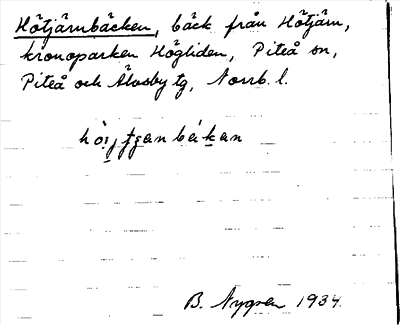 Hötjärnbäcken, bäck från Hötjärn,
kronoparken Högliden, Piteå sn,
Piteå och Älvsby tg, Norrb. l.
B. Nygren 1934.